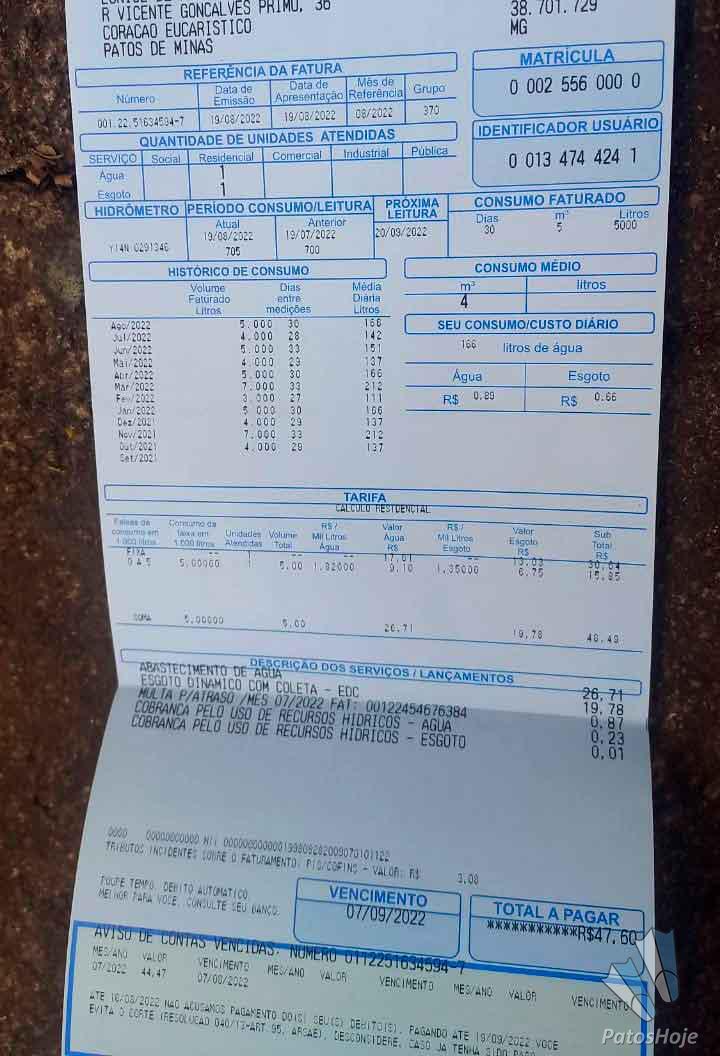 R VICENTE GONCALVES PRIMO, 36
38.701.729
CORACAO EUCARISTICO
MG
PATOS DE MINAS
MATRÍCULA
0 002 556 000 0
REFERÊNCIA DA FATURA
Número Data de Emissão Data de Apresentação Mês de Referência Grupo
001.22.51634594-7 19/08/2022 19/08/2022 08/2022 370
IDENTIFICADOR USUÁRIO
0 013 474 424 1
QUANTIDADE DE UNIDADES ATENDIDAS
SERVIÇO Social Residencial Comercial Industrial Pública
Água 1
Esgoto 1
HIDRÔMETRO PERÍODO CONSUMO/LEITURA PRÓXIMA LEITURA CONSUMO FATURADO
Atual Anterior Dias m³ Litros
19/08/2022 19/07/2022 20/09/2022 30 5 5000
Y14N 0291346 705 700
HISTÓRICO DE CONSUMO
Volume Faturado Litros Dias entre medições Média Diária Litros
Ago/2022 5.000 30 166
Jul/2022 4.000 28 142
Jun/2022 5.000 33 151
Mai/2022 4.000 29 137
Abr/2022 5.000 30 166
Mar/2022 7.000 33 212
Fev/2022 3.000 27 111
Jan/2022 5.000 30 166
Dez/2021 4.000 29 137
Nov/2021 7.000 33 212
Out/2021 4.000 29 137
Set/2021
CONSUMO MÉDIO
m³ litros
4
SEU CONSUMO/CUSTO DIÁRIO
166 litros de água
Água Esgoto
R$ 0.89 R$ 0.66
TARIFA
CALCULO RESIDENCIAL
Faixas de consumo em 1.000 litros Consumo da faixa em 1.000 litros Unidades Atendidas Volume Total R$ / Mil Litros Água Valor Água R$ R$ / Mil Litros Esgoto Valor Esgoto R$ Sub Total R$
FIXA -- 1 -- -- 17,61 -- 13,03 30,64
0 A 5 5,00000 5,00 1,82000 9,10 1,35000 6,75 15,85
SOMA 5,00000 5,00 26,71 19,78 46,49
DESCRIÇÃO DOS SERVIÇOS / LANÇAMENTOS
ABASTECIMENTO DE AGUA 26,71
ESGOTO DINAMICO COM COLETA - EDC 19,78
MULTA P/ATRASO /MES 07/2022 FAT: 00122454676384 0,87
COBRANCA PELO USO DE RECURSOS HIDRICOS - AGUA 0,23
COBRANCA PELO USO DE RECURSOS HIDRICOS - ESGOTO 0,01
TRIBUTOS INCIDENTES SOBRE O FATURAMENTO: PIS/COFINS - VALOR: R$ 3,08
POUPE TEMPO. DEBITO AUTOMATICO.
MELHOR PARA VOCE. CONSULTE SEU BANCO.
VENCIMENTO
07/09/2022
TOTAL A PAGAR
***********R$47,60
AVISO DE CONTAS VENCIDAS. NUMERO 0112251634594-7
MES/ANO VALOR VENCIMENTO MES/ANO VALOR VENCIMENTO MES/ANO VALOR VENCIMENTO
07/2022 44,47 07/08/2022
ATE 16/08/2022 NAO ACUSAMOS PAGAMENTO DO(S) SEU(S) DEBITO(S). PAGANDO ATE 19/09/2022 VOCE
EVITA O CORTE (RESOLUCAO 040/13-ART.95, ARSAE). DESCONSIDERE, CASO JA TENHA SIDO
PatosHoje